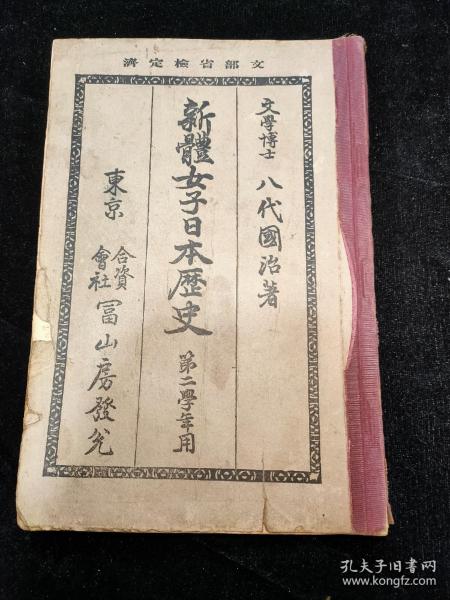 濟定檢省部文
文學博士 八代國治著
新體女子日本歷史 第二學年用
東京 合資會社 冨山房發兌
孔夫子旧书网
www.kongfz.com